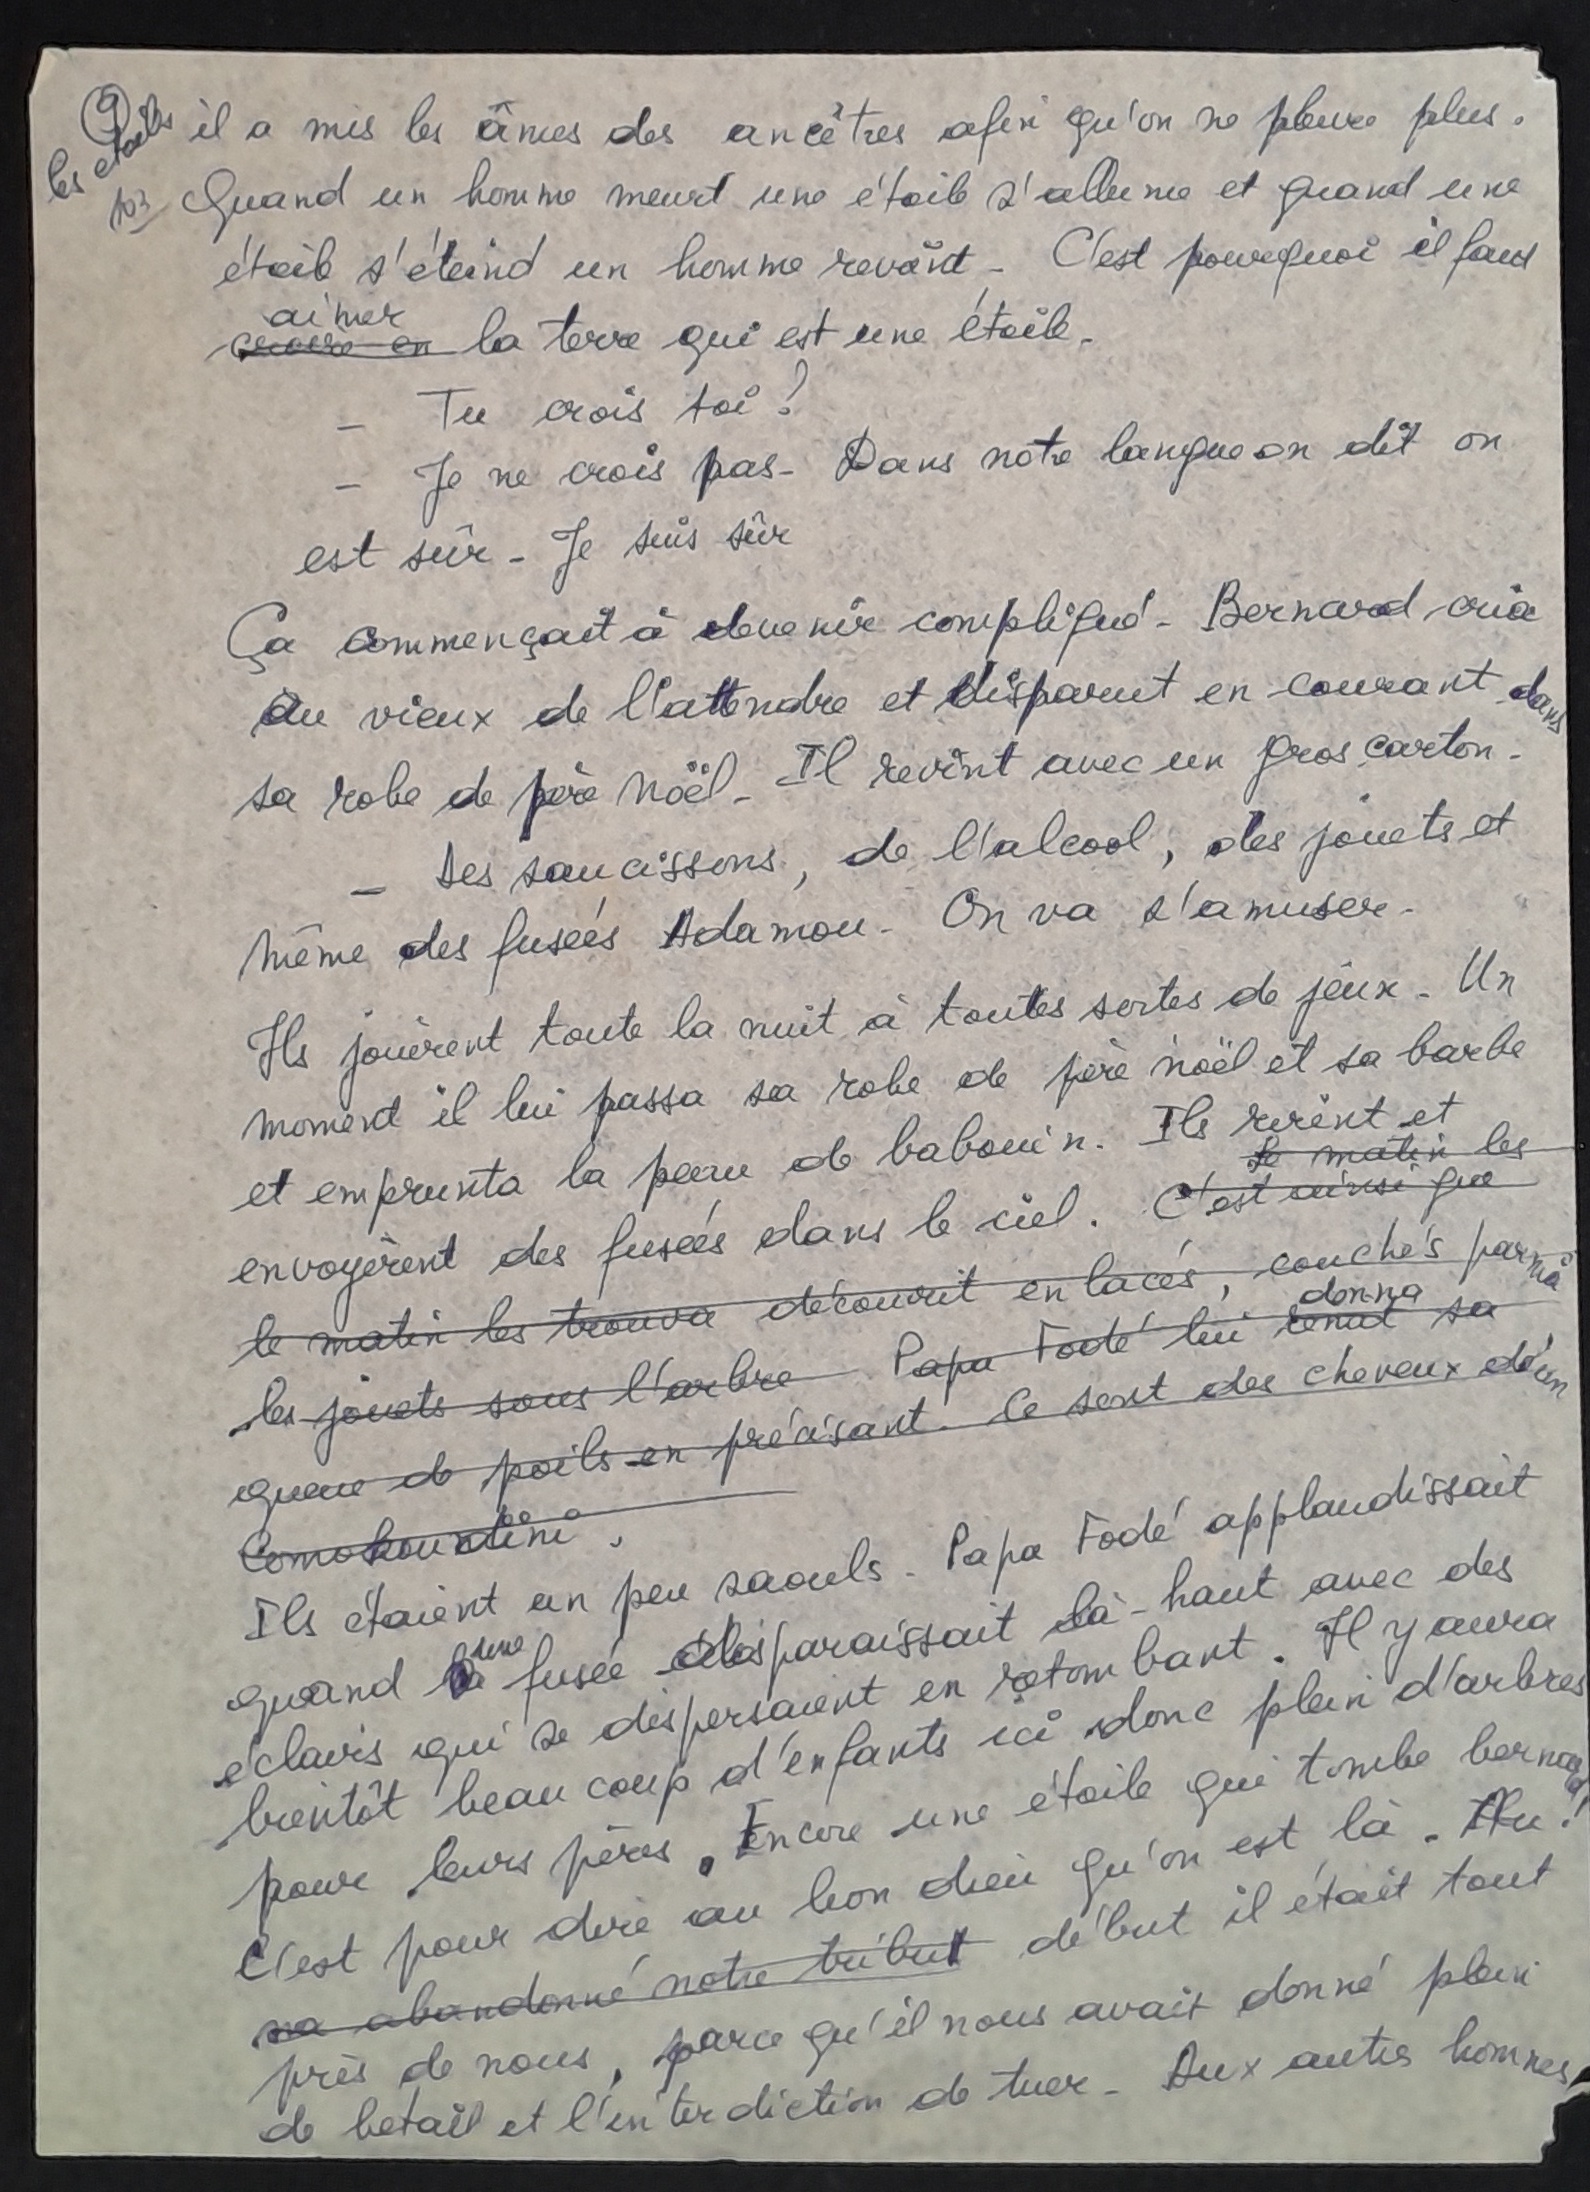 9
les étoiles il a mis les âmes des ancêtres afin qu'on ne pleure plus.
103 Quand un homme meurt une étoile s'allume et quand une
étoile s'éteind un homme revînt - C'est pourquoi il faut
aimer
croire en la terre qui est une étoile.
- Tu crois toi ?
- Je ne crois pas - Dans notre langue on dit on
est sûr - Je suis sûr
Ça commençait à devenir compliqué - Bernard cria
au vieux de l'attendre et disparut en courant dans
sa robe de père Noël - Il revint avec un gros carton -
- Des saucissons, de l'alcool, des jouets et
même des fusées Adamou - On va s'amuser -
Ils jouèrent toute la nuit à toutes sortes de jeux - Un
moment il lui passa sa robe de père noël et sa barbe
et emprunta la peau de babouin. Ils rirent et
le matin les
envoyèrent des fusées dans le ciel. C'est ainsi que
le matin les trouva découvrit enlacés, couchés parmi
donna
les jouets sous l'arbre Papa Fodé lui remit sa
queue de poils en précisant. Ce sont des cheveux d'un
Ils étaient un peu saouls - Papa Fodé applaudissait
une
quand la fusée disparaissait là-haut avec des
éclairs qui se dispersaient en retombant. Il y aura
bientôt beaucoup d'enfants ici donc plein d'arbres
pour leurs pères. Encore une étoile qui tombe bernard
C'est pour dire au bon dieu qu'on est là. Au !
va abandonné notre tribut début il était tout
près de nous, parce qu'il nous avait donné plein
de bétail et l'interdiction de tuer - Aux autres hommes